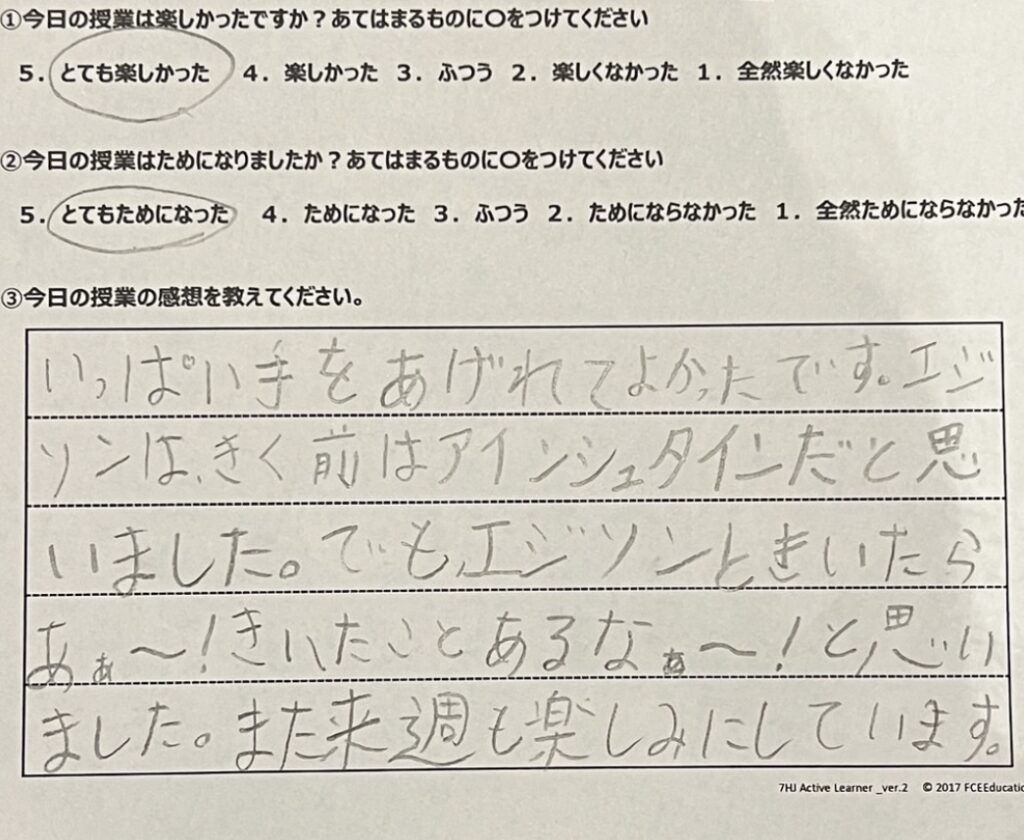 ①今日の授業は楽しかったですか？あてはまるものに〇をつけてください
5．とても楽しかった　4．楽しかった　3．ふつう　2．楽しくなかった　1．全然楽しくなかった
②今日の授業はためになりましたか？あてはまるものに〇をつけてください
5．とてもためになった　4．ためになった　3．ふつう　2．ためにならなかった　1．全然ためにならなかった
③今日の授業の感想を教えてください。
いっぱい手をあげれてよかったです。エジ
ソンは、きく前はアインシュタインだと思
いました。でも、エジソンときいたら
あぁ〜！きいたことあるなぁ〜！と思い
ました。また来週も楽しみにしています。
7HJ Active Learner _ver.2　© 2017 FCEEducatio